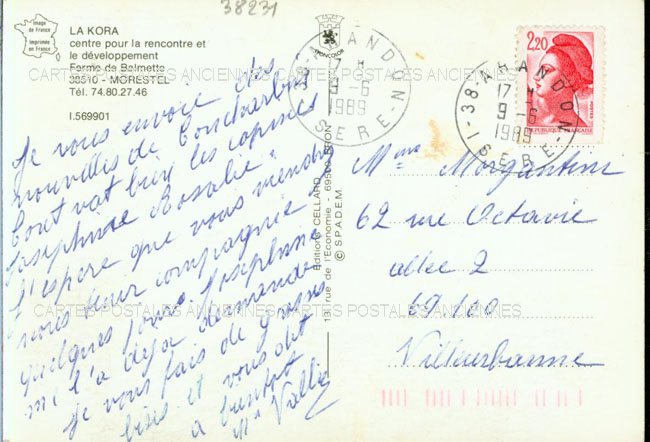 38231
Image
de France
Imprimée
en France
LA KORA
centre pour la rencontre et
le développement
Ferme de Balmette
38510 - MORESTEL
Tél. 74.80.27.46
I.569901
Je vous envoie des
nouvelles de
tout vat bien les copines
Joséphine Rosalie
J'espère que vous viendrez
nous tenir compagnie
quelques jours. Joséphine
me l'a déjà demandé
Je vous fais de gros
bises et vous dit
a bientot
Editions CELLARD
131, rue de l'Economie - 69500 BRON
© SPADEM
38-ARANDON
17 H
9-6
1989
ISERE
2,20
REPUBLIQUE FRANÇAISE
38-ARANDON
17 H
9-6
1989
ISERE
Mme Morgantini
62 rue Octavie
allee 2
69100
Villeurbanne
CARTES POSTALES ANCIENNES CARTES POSTALES ANCIENNES
CARTES POSTALES ANCIENNES CARTES POSTALES ANCIENNES